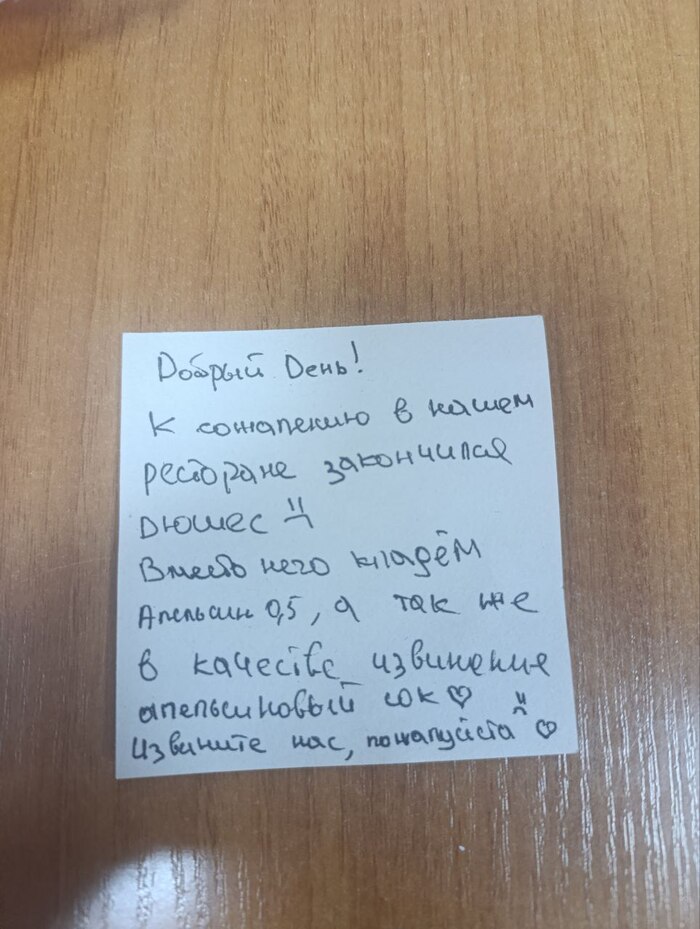 Добрый День!
К сожалению в нашем
ресторане закончился
дюшес :(
Вместо него кладём
Апельсин 0,5, а так же
в качестве извинение
апельсиновый сок ♡
Извините нас, пожалуйста :( ♡